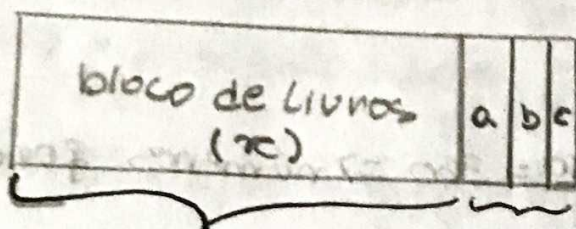 bloco de Livros a b c
(x)